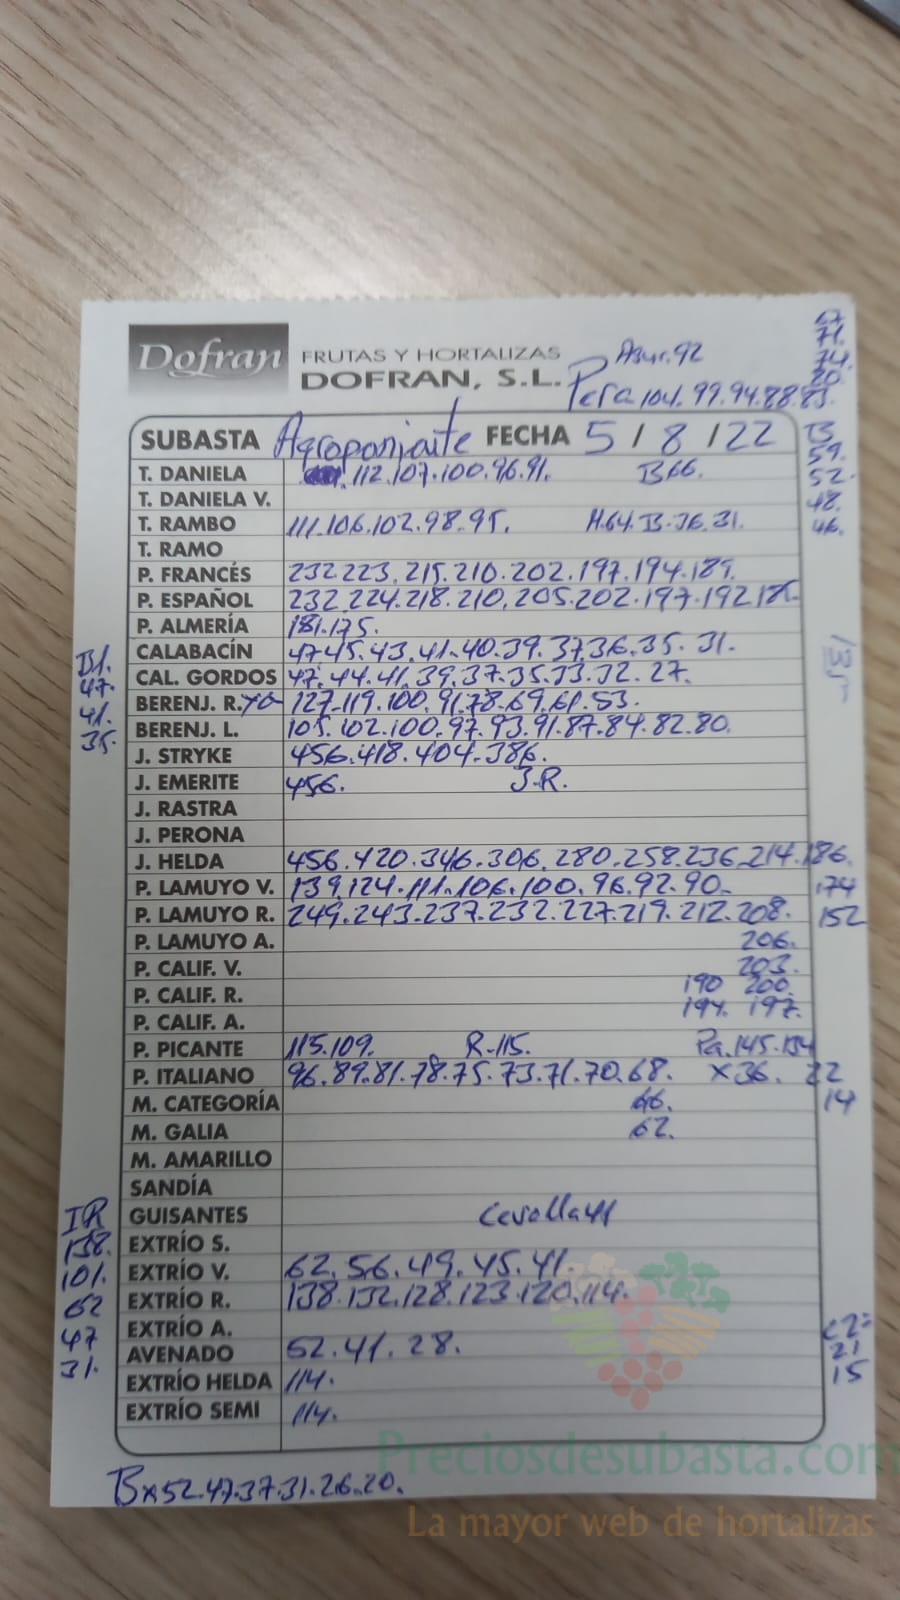 Dofran FRUTAS Y HORTALIZAS
DOFRAN, S.L.
Asur. 92
Pera 104. 99. 94. 88. 83.
71.
74.
80.
SUBASTA Agroponiente FECHA 5 / 8 / 22
B
59.
52.
48.
46.
T. DANIELA 112. 107. 100. 96. 91. B66.
T. DANIELA V.
T. RAMBO 111. 106. 102. 98. 95. H.64. B-36. 31.
T. RAMO
P. FRANCÉS 232 223. 215. 210. 202. 197. 194. 189.
P. ESPAÑOL 232 224. 218. 210. 205. 202. 197. 192
P. ALMERÍA 181. 175.
CALABACÍN 47 45. 43. 41. 40. 39. 37 36. 35. 31.
CAL. GORDOS 47. 44. 41. 39. 37. 35. 33. 32. 27.
B1.
47.
41.
35.
BERENJ. R. 127. 119. 100. 91. 78. 69. 61. 53.
BERENJ. L. 105. 102. 100. 97. 93. 91. 87. 84. 82. 80.
J. STRYKE 456. 418. 404. 386.
J. EMERITE 456. J.R.
J. RASTRA
J. PERONA
J. HELDA 456. 420. 346. 306. 280. 258. 236. 214. 186.
P. LAMUYO V. 139. 124. 111. 106. 100. 96. 92. 90. 174
P. LAMUYO R. 249. 243. 237. 232. 227. 219. 212. 208. 152
P. LAMUYO A. 206.
P. CALIF. V. 203.
P. CALIF. R. 190 200.
P. CALIF. A. 194. 197.
P. PICANTE 115. 109. R-115. Pa. 145. 134
P. ITALIANO 96. 89. 81. 78. 75. 73. 71. 70. 68. x36. 22
M. CATEGORÍA 66. 14
M. GALIA 62.
M. AMARILLO
SANDÍA
GUISANTES Cevolla 41
IR
138.
101.
62
47
31.
EXTRÍO S.
EXTRÍO V. 62. 56. 49. 45. 41.
EXTRÍO R. 138. 132. 128. 123. 120. 114.
EXTRÍO A.
AVENADO 52. 41. 28.
21
15
EXTRÍO HELDA 114.
EXTRÍO SEMI 114.
Bx52. 47. 37. 31. 26. 20.
Preciosdesubasta.com
La mayor web de hortalizas